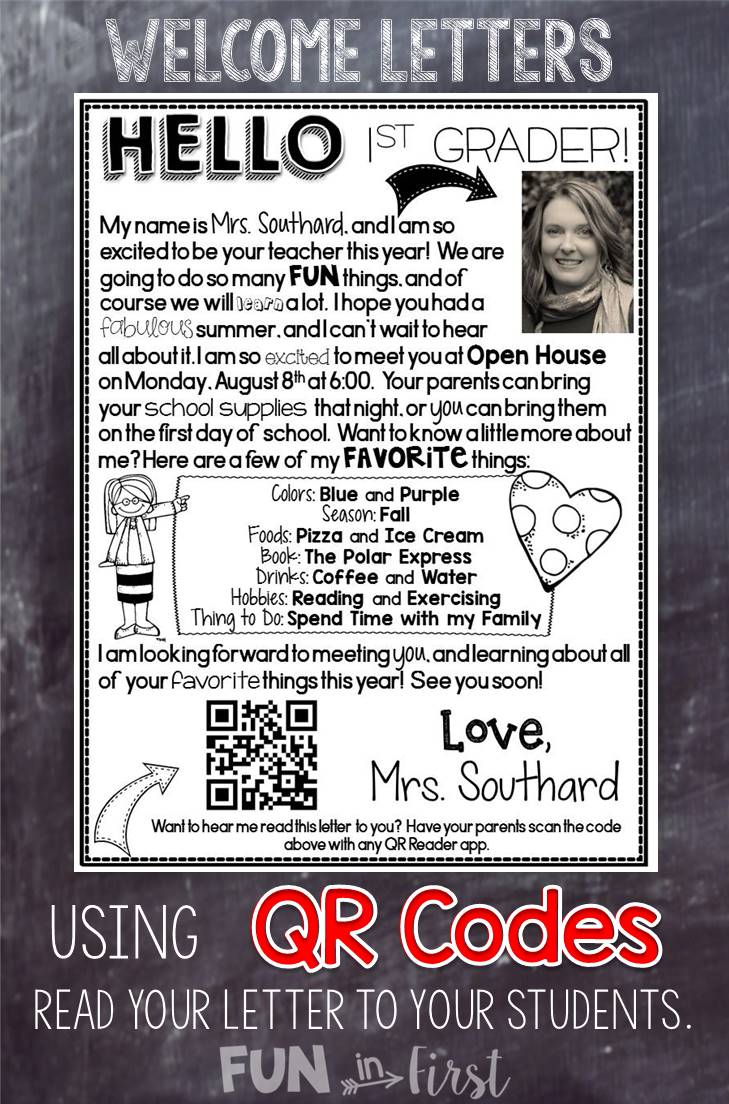 WELCOME LETTERS
HELLO 1ST GRADER!
My name is Mrs. Southard, and I am so
excited to be your teacher this year! We are
going to do so many FUN things, and of
course we will learn a lot. I hope you had a
fabulous summer, and I can't wait to hear
all about it. I am so excited to meet you at Open House
on Monday, August 8th at 6:00. Your parents can bring
your school supplies that night, or you can bring them
on the first day of school. Want to know a little more about
me? Here are a few of my FAVORiTE things:
Colors: Blue and Purple
Season: Fall
Foods: Pizza and Ice Cream
Book: The Polar Express
Drinks: Coffee and Water
Hobbies: Reading and Exercising
Thing to Do: Spend Time with my Family
I am looking forward to meeting you, and learning about all
of your favorite things this year! See you soon!
Love,
Mrs. Southard
Want to hear me read this letter to you? Have your parents scan the code
above with any QR Reader app.
USING QR Codes
READ YOUR LETTER TO YOUR STUDENTS.
FUN in First